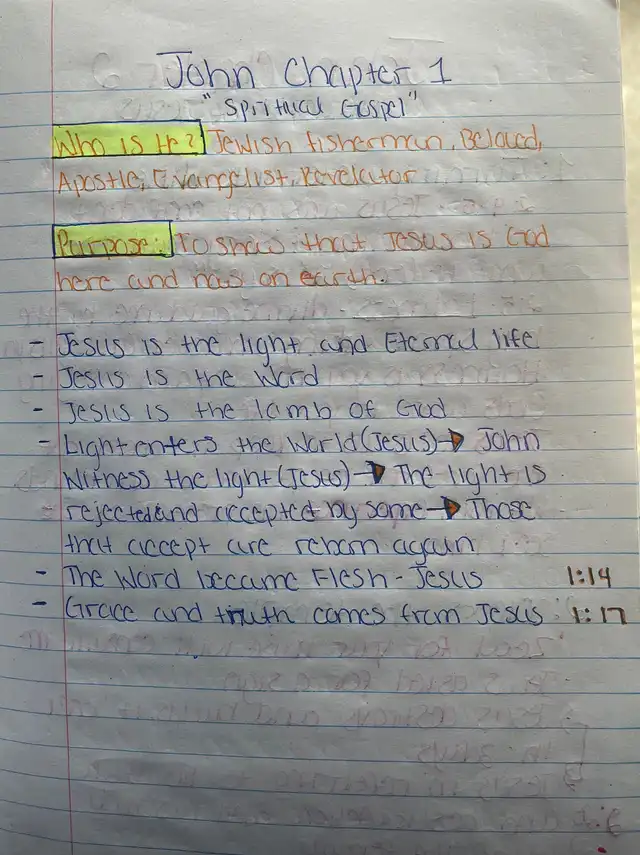 John Chapter 1
"Spiritual Gospel"
Who is He? Jewish fisherman, Beloved,
Apostle, Evangelist, Revelator
Purpose: To show that Jesus is God
here and was on earth.
- Jesus is the light and Eternal life
- Jesus is the Word
- Jesus is the lamb of God
- Light enters the World (Jesus) → John
Witness the light (Jesus) → The light is
rejected and accepted by some → Those
that accept are reborn again
- The Word became Flesh - Jesus 1:14
- Grace and truth comes from Jesus 1:17